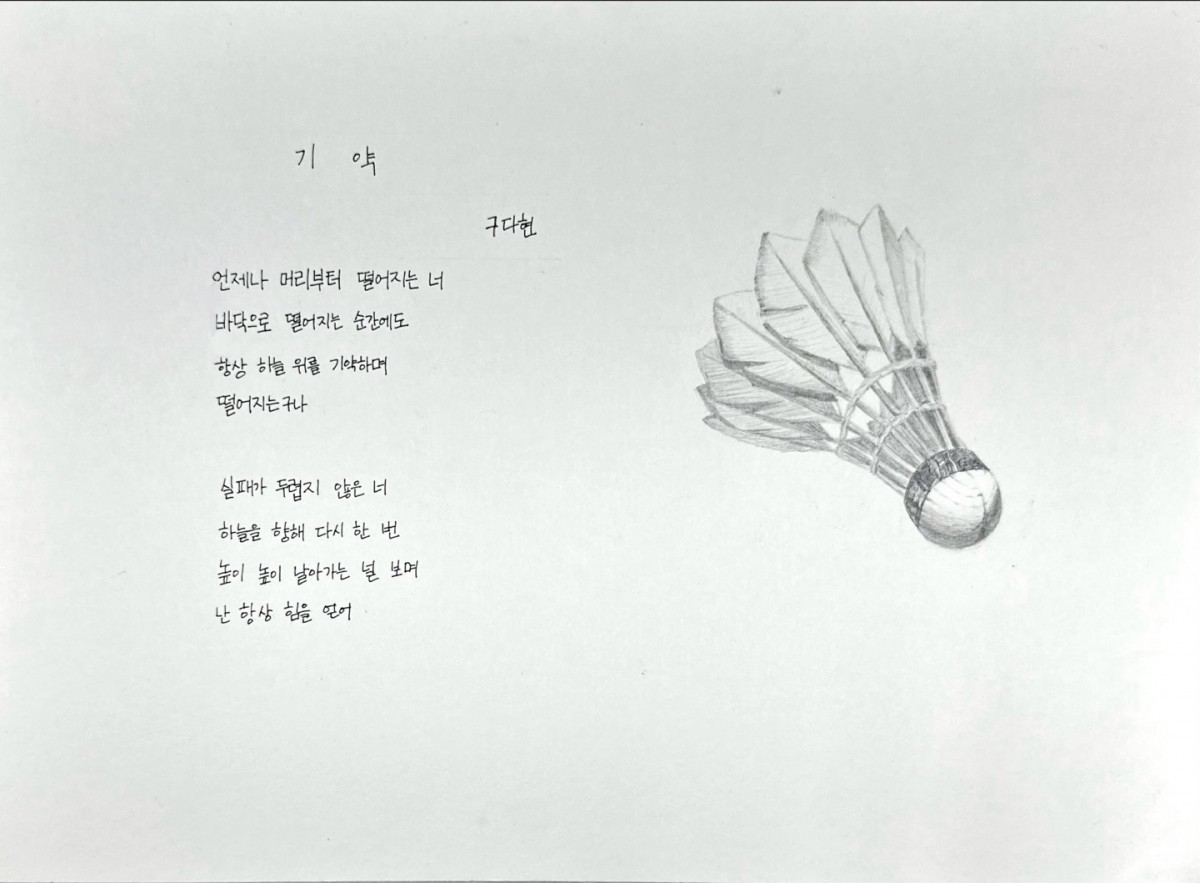 기 약
구다현
언제나 머리부터 떨어지는 너
바닥으로 떨어지는 순간에도
항상 하늘 위를 기약하며
떨어지는구나
실패가 두렵지 않은 너
하늘을 향해 다시 한 번
높이 높이 날아가는 널 보며
난 항상 힘을 얻어